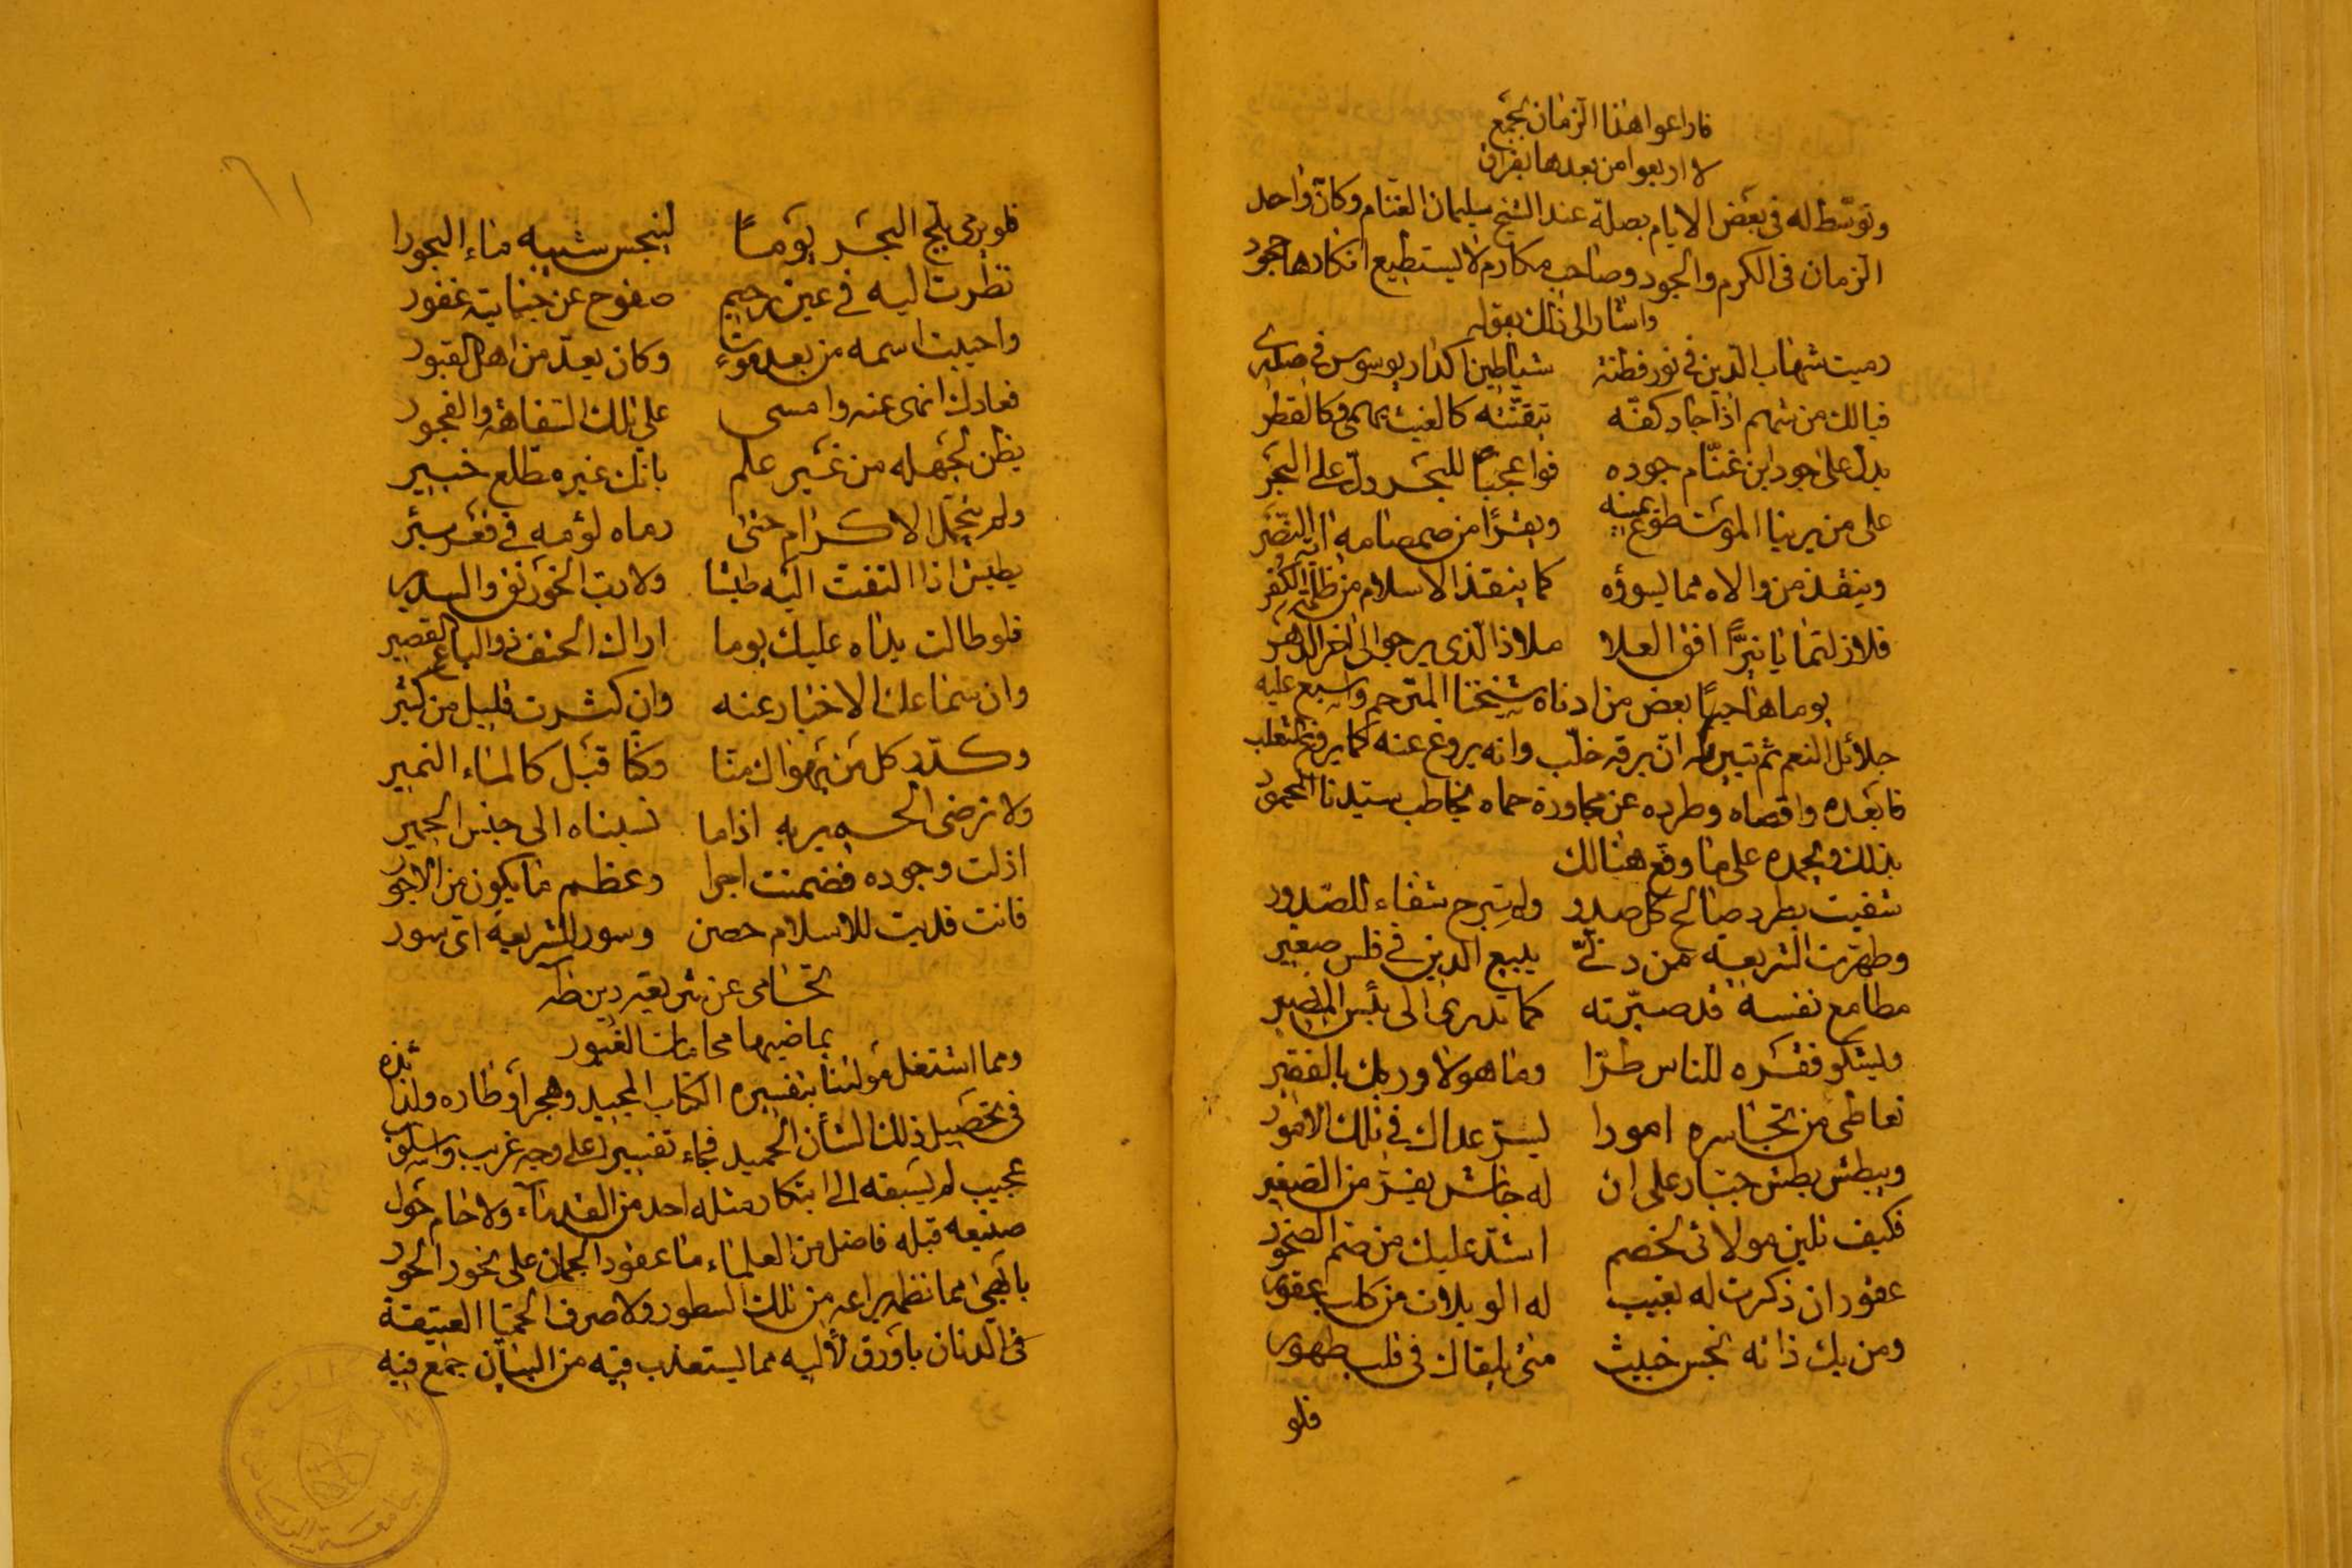 ما راعوا هذا الزمان بجمع
لا اربعوا من بعدها بفراق
وتوسط له في بعض الايام بصلة عند الشيخ سليمان الغنام وكان واحد
الزمان في الكرم والجود وصاحب مكارم لا يستطيع انكارها جحود
واشار الى ذلك بقوله
رميت شهاب الدين في نور فطنة شياطين اكدار يوسوس في صدري
فيالك من شهم اذا جاد كفه تيقنته كالغيث يهمي وكالقطر
يدل على جود ابن غنام جوده فوا عجبا للبحر دل على البحر
على من يرينا الموت طوع يمينه ويقرا من صمصامه اية النصر
وينقذ من والاه مما يسوؤه كما ينقذ الاسلام من ظلمة الكفر
فلا زلتما يا نيرا افق العلا ملاذا الذي يرجو الى اخر الدهر
يوما هاجيا بعض من ادناه شيخنا المترجم واسبغ عليه
جلائل النعم ثم تبين له ان برقه خلب وانه يروغ عنه كما يروغ الثعلب
فابعده واقصاه وطرده عن مجاورة حماه يخاطب سيدنا المحمود
بذلك ويحمده على ما وقع هنالك
شفيت بطرد صالح كل صدر ولم تبرح شفاء للصدور
وطهرت الشريعة من دني يبيع الدين في فلس صغير
مطامع نفسه قد صيرته كما تدري الى بئس المصير
وليشكو فقره للناس طرا وما هو لا وربك بالفقير
تعاطى من تجاسره امورا ليستر عداك في تلك الامور
ويبطش بطش جبار على ان له جاش يفر من الصفير
فكيف تلين مولائي لخصم اشد عليك من صم الصخور
عقور ان ذكرت له بغيب له الويلات من كلب عقور
ومن يك ذاته نجس خبيث متى يلقاك في قلب طهور
فلو
٦١
فلو يرى يلج البحر يوما لينجس شبيه ماء البحور
نظرت اليه في عين رحيم صفوح عن جنايته غفور
واحييت اسمه من بعد موت وكان يعد من اهل القبور
فعادك انمى عنه وامسى على تلك السفاهة والفجور
يظن لجهله من غير علم بانك غير مطلع خبير
ولم يتحمل الاكرام حتى رماه لؤمه في قعر بير
يطيش اذا التفت اليه طيشا ولا رب الخورنق والسدير
فلو طالت يداه عليك يوما اراك الحنف ذو الباع القصير
وان سماعنا الاخبار عنه وان كثرت قليل من كثير
وكدر كل من يهواك منا وكنا قبل كالماء النمير
ولا ترضى الحمير به اذا ما نسبناه الى جنس الحمير
ازلت وجوده فضمنت اجرا وعظم ما يكون من الاجور
فانت فديت للاسلام حصن وسور للشريعة اي سور
تحامى عن شريعة دين طه
بماضيها محاماة الغيور
ومما اشتغل مولينا بتفسيره الكتاب المجيد وهجر اوطاره ولذائذه
في تحصيل ذلك الشأن الحميد فجاء تفسيرا على وجه غريب واسلوب
عجيب لم يسبقه الى ابتكار مثله احد من القدماء ولا حام حول
صنيعه قبله فاضل من العلماء ما عقود الجمان على نحور الحور
بابهى مما نظمه يراعه من تلك السطور ولا صرف الحميا العتيقة
في الدنان باورق لأليه مما يستعذب فيه من البيان جمع فيه